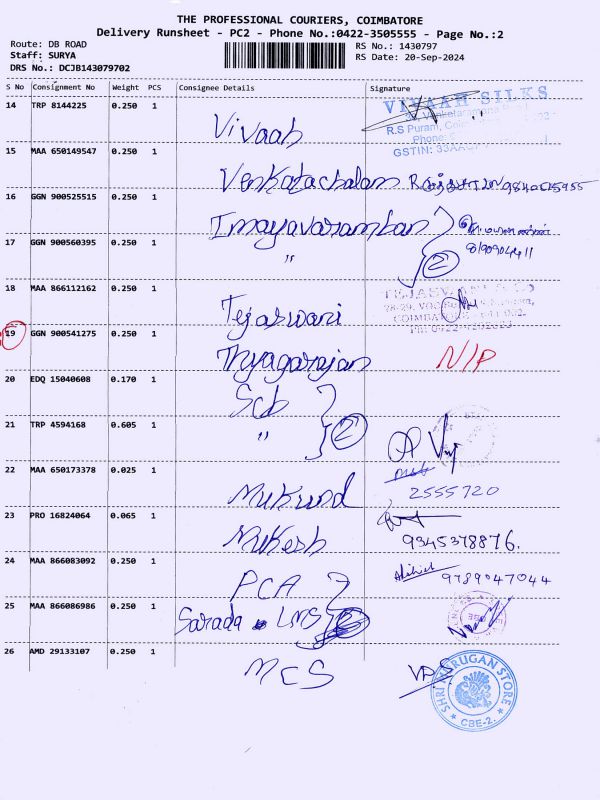 THE PROFESSIONAL COURIERS, COIMBATORE
Delivery Runsheet - PC2 - Phone No.:0422-3505555 - Page No.:2
Route: DB ROAD
Staff: SURYA
DRS No.: DCJB143079702
RS No.: 1430797
RS Date: 20-Sep-2024
S No Consignment No Weight PCS Consignee Details Signature
14 TRP 8144225 0.250 1 Vivaah
VIVAAH SILKS
R.S Puram,
Phone:
GSTIN: 33AA
15 MAA 650149547 0.250 1 Venkatachalam
16 GGN 900525515 0.250 1 Imayavaramban
17 GGN 900560395 0.250 1 " 2
18 MAA 866112162 0.250 1 Tejaswani
TEJASWANI
COIMBATORE
19 GGN 900541275 0.250 1 Thyagarajan N/P
20 EDQ 15040608 0.170 1 Scb
21 TRP 4594168 0.605 1 " 2
22 MAA 650173378 0.025 1 Mukund 2555720
23 PRO 16824064 0.065 1 Mukesh 9345378876.
24 MAA 866083092 0.250 1 PCA 9789047044
25 MAA 866086986 0.250 1 Sarada LMS
26 AMD 29133107 0.250 1 MCS
SHRI MURUGAN STORE
CBE-2.